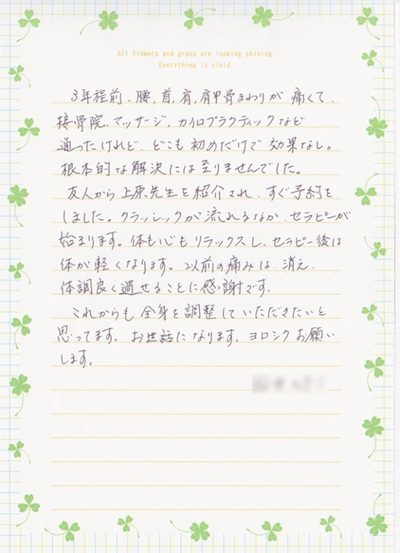 All flowers and grass are looking shining.
Everything is vivid.
3年程前、腰、首、肩、肩甲骨まわりが痛くて、
接骨院、マッサージ、カイロプラクティックなど
通ったけれど、どこも初めだけで効果なし。
根本的な解決には至りませんでした。
友人から上原先生を紹介され、すぐ予約を
しました。クラッシックが流れるなか、セラピーが
始まります。体も心もリラックスし、セラピー後は
体が軽くなります。以前の痛みは、消え、
体調良く過せることに感謝です。
これからも全身を調整していただきたいと
思ってます。お世話になります。ヨロシクお願い
します。